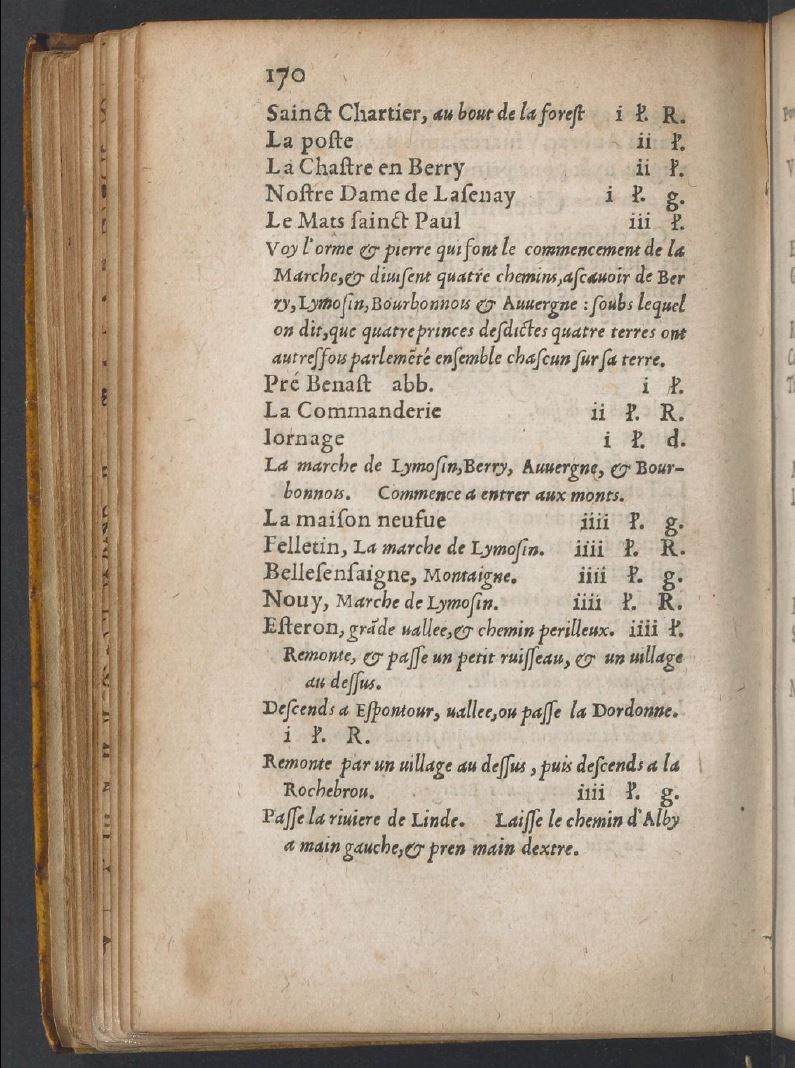 170
Sainct Chartier, au bout de la forest i ł. R.
La poste ii ł.
La Chastre en Berry ii ł.
Nostre Dame de Lasenay i ł. g.
Le Mats sainct Paul iii ł.
Voy l'orme & pierre qui font le commencement de la
Marche,& diuisent quatre chemins,ascauoir de Ber
ry,Lymosin,Bourbonnois & Auuergne : soubs lequel
on dit,que quatre princes desdictes quatre terres ont
autresfois parlemẽté ensemble chascun sur sa terre.
Pré Benast abb. i ł.
La Commanderie ii ł. R.
Iornage i ł. d.
La marche de Lymosin,Berry, Auuergne, & Bour-
bonnois. Commence a entrer aux monts.
La maison neufue iiii ł. g.
Felletin, La marche de Lymosin. iiii ł. R.
Bellesensaigne, Montaigne. iiii ł. g.
Nouy, Marche de Lymosin. iiii ł. R.
Esteron, grãde uallee,& chemin perilleux. iiii ł.
Remonte, & passe un petit ruisseau, & un uillage
au dessus.
Descends a Espontour, uallee,ou passe la Dordonne.
i ł. R.
Remonte par un uillage au dessus , puis descends a la
Rochebrou. iiii ł. g.
Passe la riuiere de Linde. Laisse le chemin d'Alby
a main gauche,& pren main dextre.